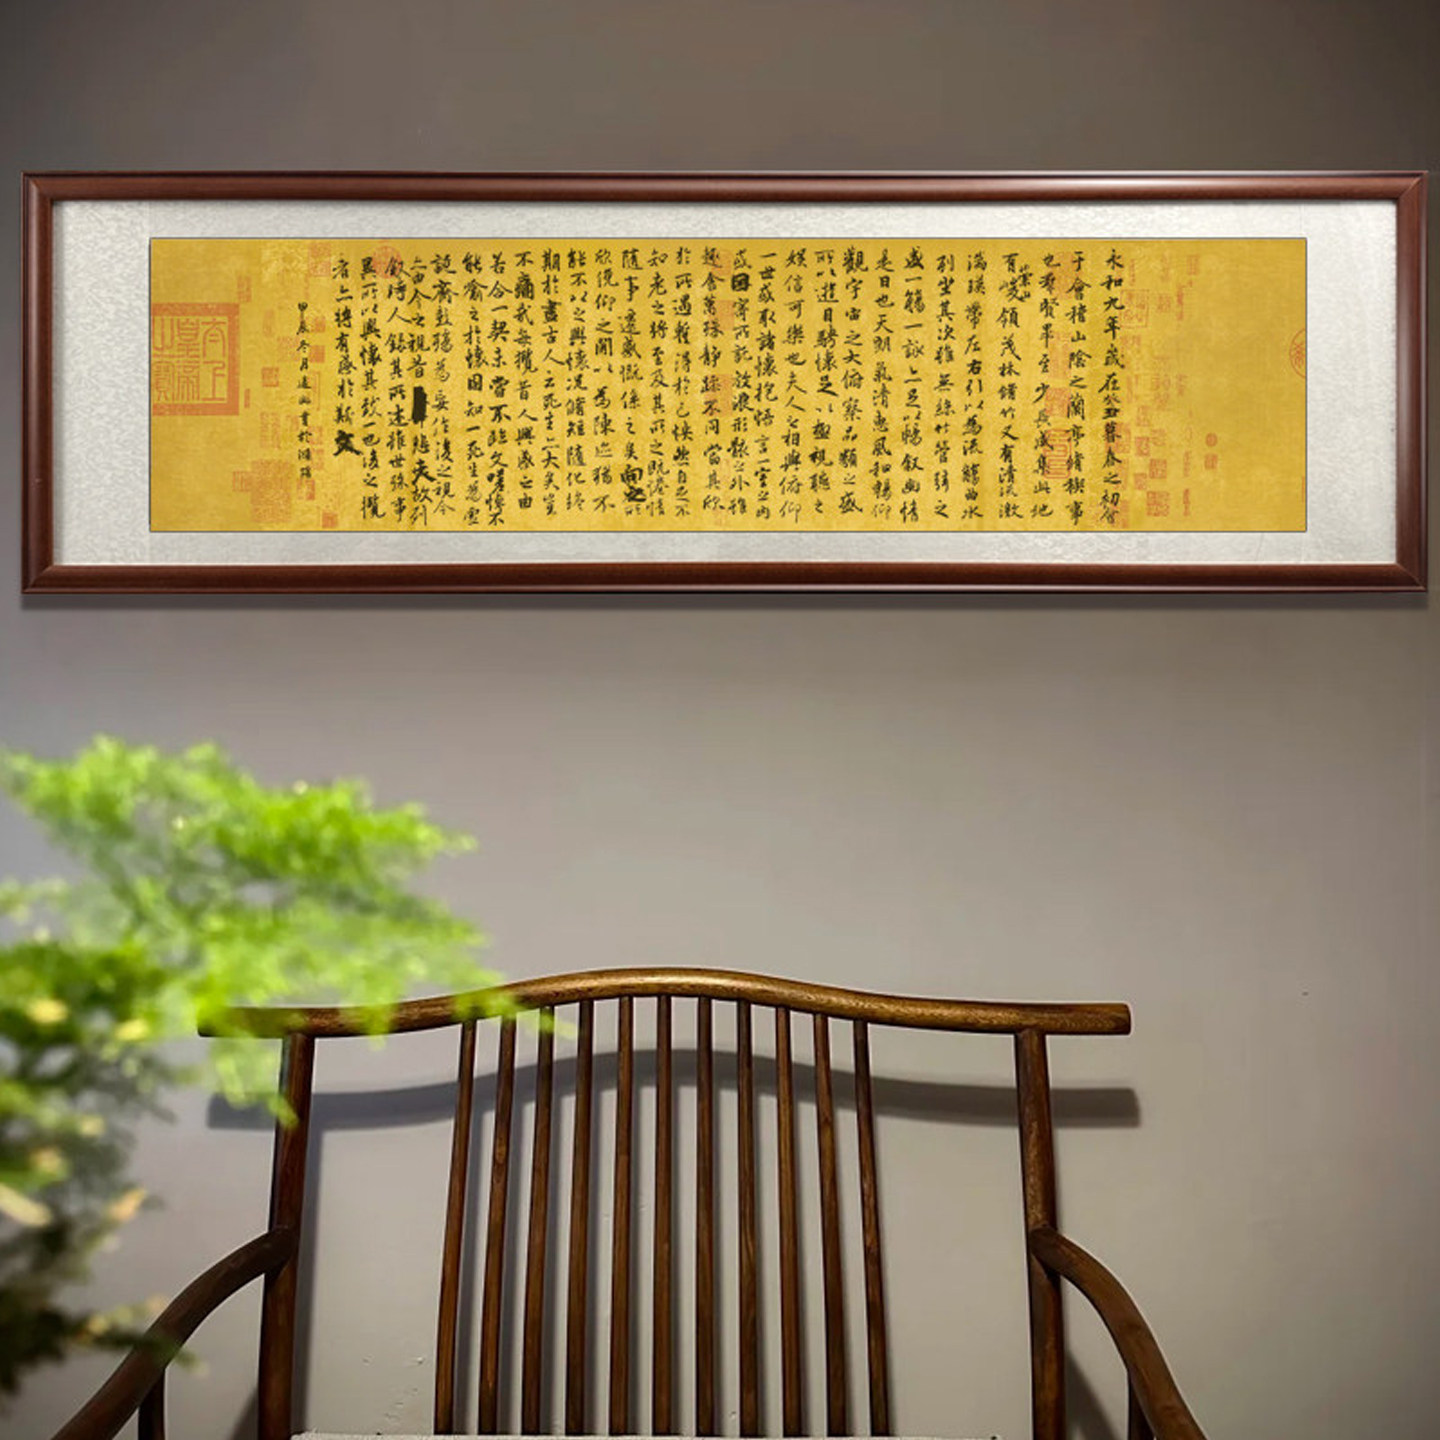 永和九年歲在癸丑暮春之初會
于會稽山陰之蘭亭脩稧事
也羣賢畢至少長咸集此地
有崇山峻領茂林脩竹又有清流激
湍暎帶左右引以為流觴曲水
列坐其次雖無絲竹管絃之
盛一觴一詠亦足以暢敘幽情
是日也天朗氣清惠風和暢仰
觀宇宙之大俯察品類之盛
所以遊目騁懷足以極視聽之
娛信可樂也夫人之相與俯仰
一世或取諸懷抱悟言一室之內
或因寄所託放浪形骸之外雖
趣舍萬殊靜躁不同當其欣
於所遇暫得於己怏然自足不
知老之將至及其所之既倦情
隨事遷感慨係之矣向之所
欣俛仰之間以為陳迹猶不
能不以之興懷況脩短隨化終
期於盡古人云死生亦大矣豈
不痛哉每攬昔人興感之由
若合一契未嘗不臨文嗟悼不
能喻之於懷固知一死生為虛
誕齊彭殤為妄作後之視今
亦由今之視昔悲夫故列
敘時人錄其所述雖世殊事
異所以興懷其致一也後之攬
者亦將有感於斯文
甲辰冬月遠幽書於